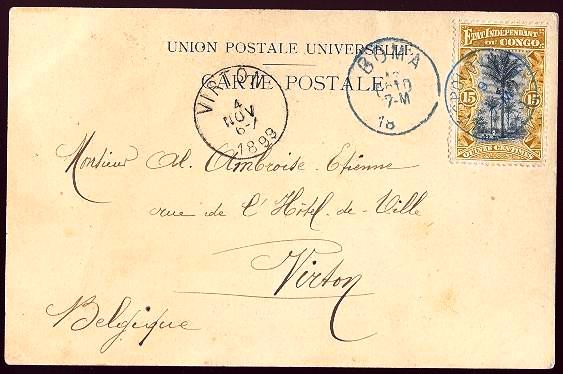 UNION POSTALE UNIVERSELLE
CARTE POSTALE
ETAT INDÉPENDANT
DU CONGO.
15 15
QUINZE CENTIMES
BOMA
7-M
18
VIRTON
4
NOV
6-7
1899
Monsieur Al. Ambroise. Etienne
rue de l'Hôtel-de-Ville
Virton
Belgique